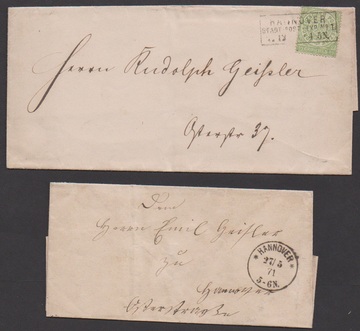 HANNOVER
STADT POST
Herrn Rudolph Geißler
Osterstr 37.
Dem
Herrn Emil Geißler
zu
Hannover
Osterstraße
* HANNOVER *
27/5
71
5-6N.